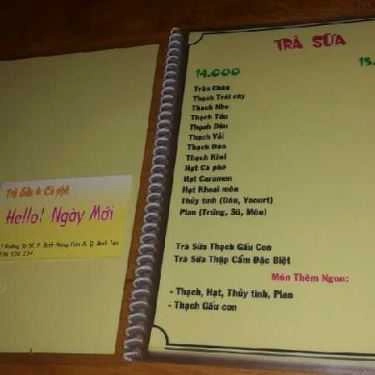 Trà Sữa & Cà phê
Hello! Ngày Mới
TRÀ SỮA
14.000
Trân Châu
Thạch Trái cây
Thạch Nho
Thạch Táo
Thạch Dâu
Thạch Vải
Thạch Đào
Thạch Khoai
Hạt Cà phê
Hạt Caramen
Hạt Khoai môn
Thủy tinh (Dâu, Yaourt)
Plan (Trứng, Sữa, Môn)
Trà Sữa Thạch Gấu Con
Trà Sữa Thập Cẩm Đặc Biệt
Món Thêm Ngon:
- Thạch, Hạt, Thủy tinh, Plan
- Thạch Gấu con